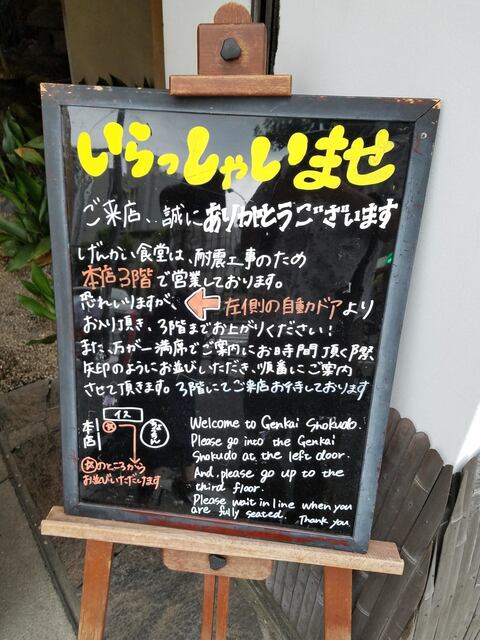 いらっしゃいませ
ご来店、誠にありがとうございます
げんかい食堂は、耐震工事のため
本店3階で営業しております。
恐れいりますが、←左側の自動ドアより
お入り頂き、3階までお上がりください!
また、万が一満席でご案内にお時間頂く際
矢印のようにお並びいただき、順番にご案内
させて頂きます。3階にてご来店お待ちしております
イス
本店
のところから
お並びいただけます
Welcome to Genkai Shokudo.
Please go into the Genkai
Shokudo at the left door.
And, please go up to the
third floor.
Please wait in line when you
are fully seated. Thank you